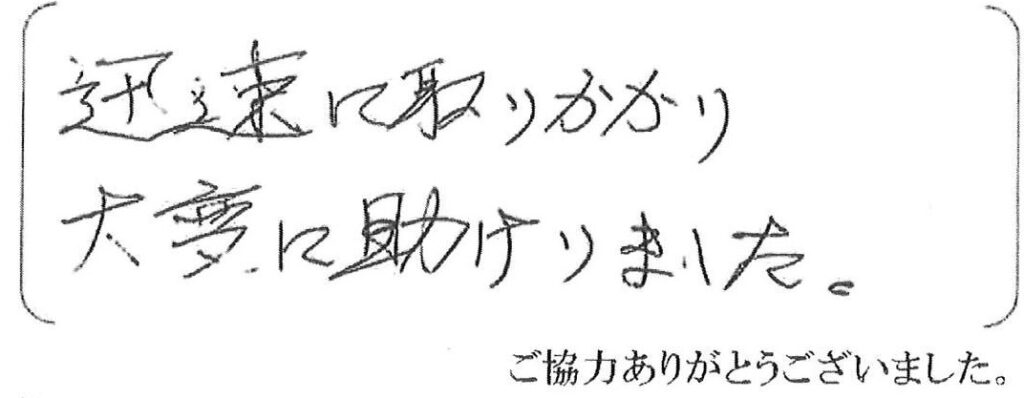 迅速に取りかかり
大変に助けりました。
ご協力ありがとうございました。